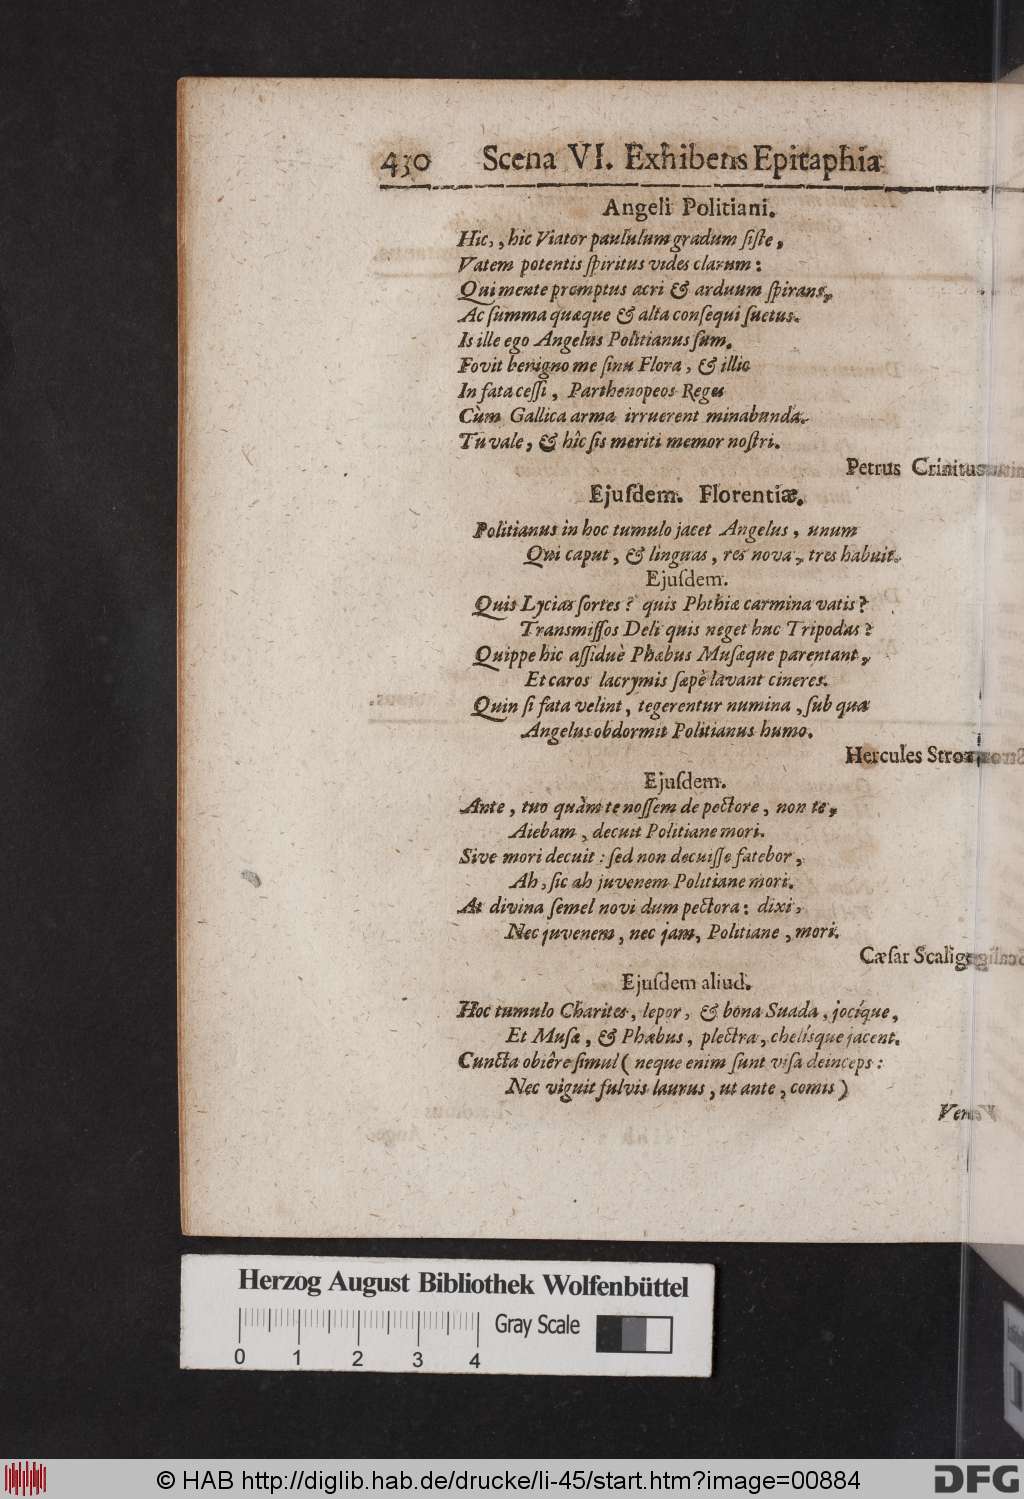 430 Scena VI. Exhibens Epitaphia
Angeli Politiani.
Hic, hic Viator paululum gradum siste,
Vatem potentis spiritus vides clarum:
Qui mente promptus acri & arduum spirans,
Ac summa quæque & alta consequi suetus.
Is ille ego Angelus Politianus sum.
Fovit benigno me sinu Flora, & illic
In fata cessi, Parthenopeos Reges
Cùm Gallica arma irruerent minabunda.
Tu vale, & hîc sis meriti memor nostri.
Petrus Crinitus
Ejusdem. Florentiæ.
Politianus in hoc tumulo jacet Angelus, unum
Qui caput, & linguas, res nova, tres habuit.
Ejusdem.
Quis Lycias sortes? quis Phthiæ carmina vatis?
Transmissos Deli quis neget huc Tripodas?
Quippe hic assiduè Phœbus Musæque parentant,
Et caros lacrymis sæpè lavant cineres.
Quin si fata velint, tegerentur numina, sub qua
Angelus obdormit Politianus humo.
Hercules
Ejusdem.
Ante, tuo quàm te nossem de pectore, non te,
Aiebam, decuit Politiane mori.
Sive mori decuit: sed non decuisse fatebor,
Ah, sic ah juvenem Politiane mori.
At divina semel novi dum pectora: dixi,
Nec juvenem, nec jam, Politiane, mori.
Cæsar
Ejusdem aliud.
Hoc tumulo Charites, lepor, & bona Suada, jocíque,
Et Musæ, & Phœbus, plectra, chelísque jacent.
Cuncta obiêre simul (neque enim sunt visa deinceps:
Nec viguit fulvis laurus, ut ante, comis)
Herzog August Bibliothek Wolfenbüttel
Gray Scale
0 1 2 3 4
© HAB http://diglib.hab.de/drucke/li-45/start.htm?image=00884
DFG